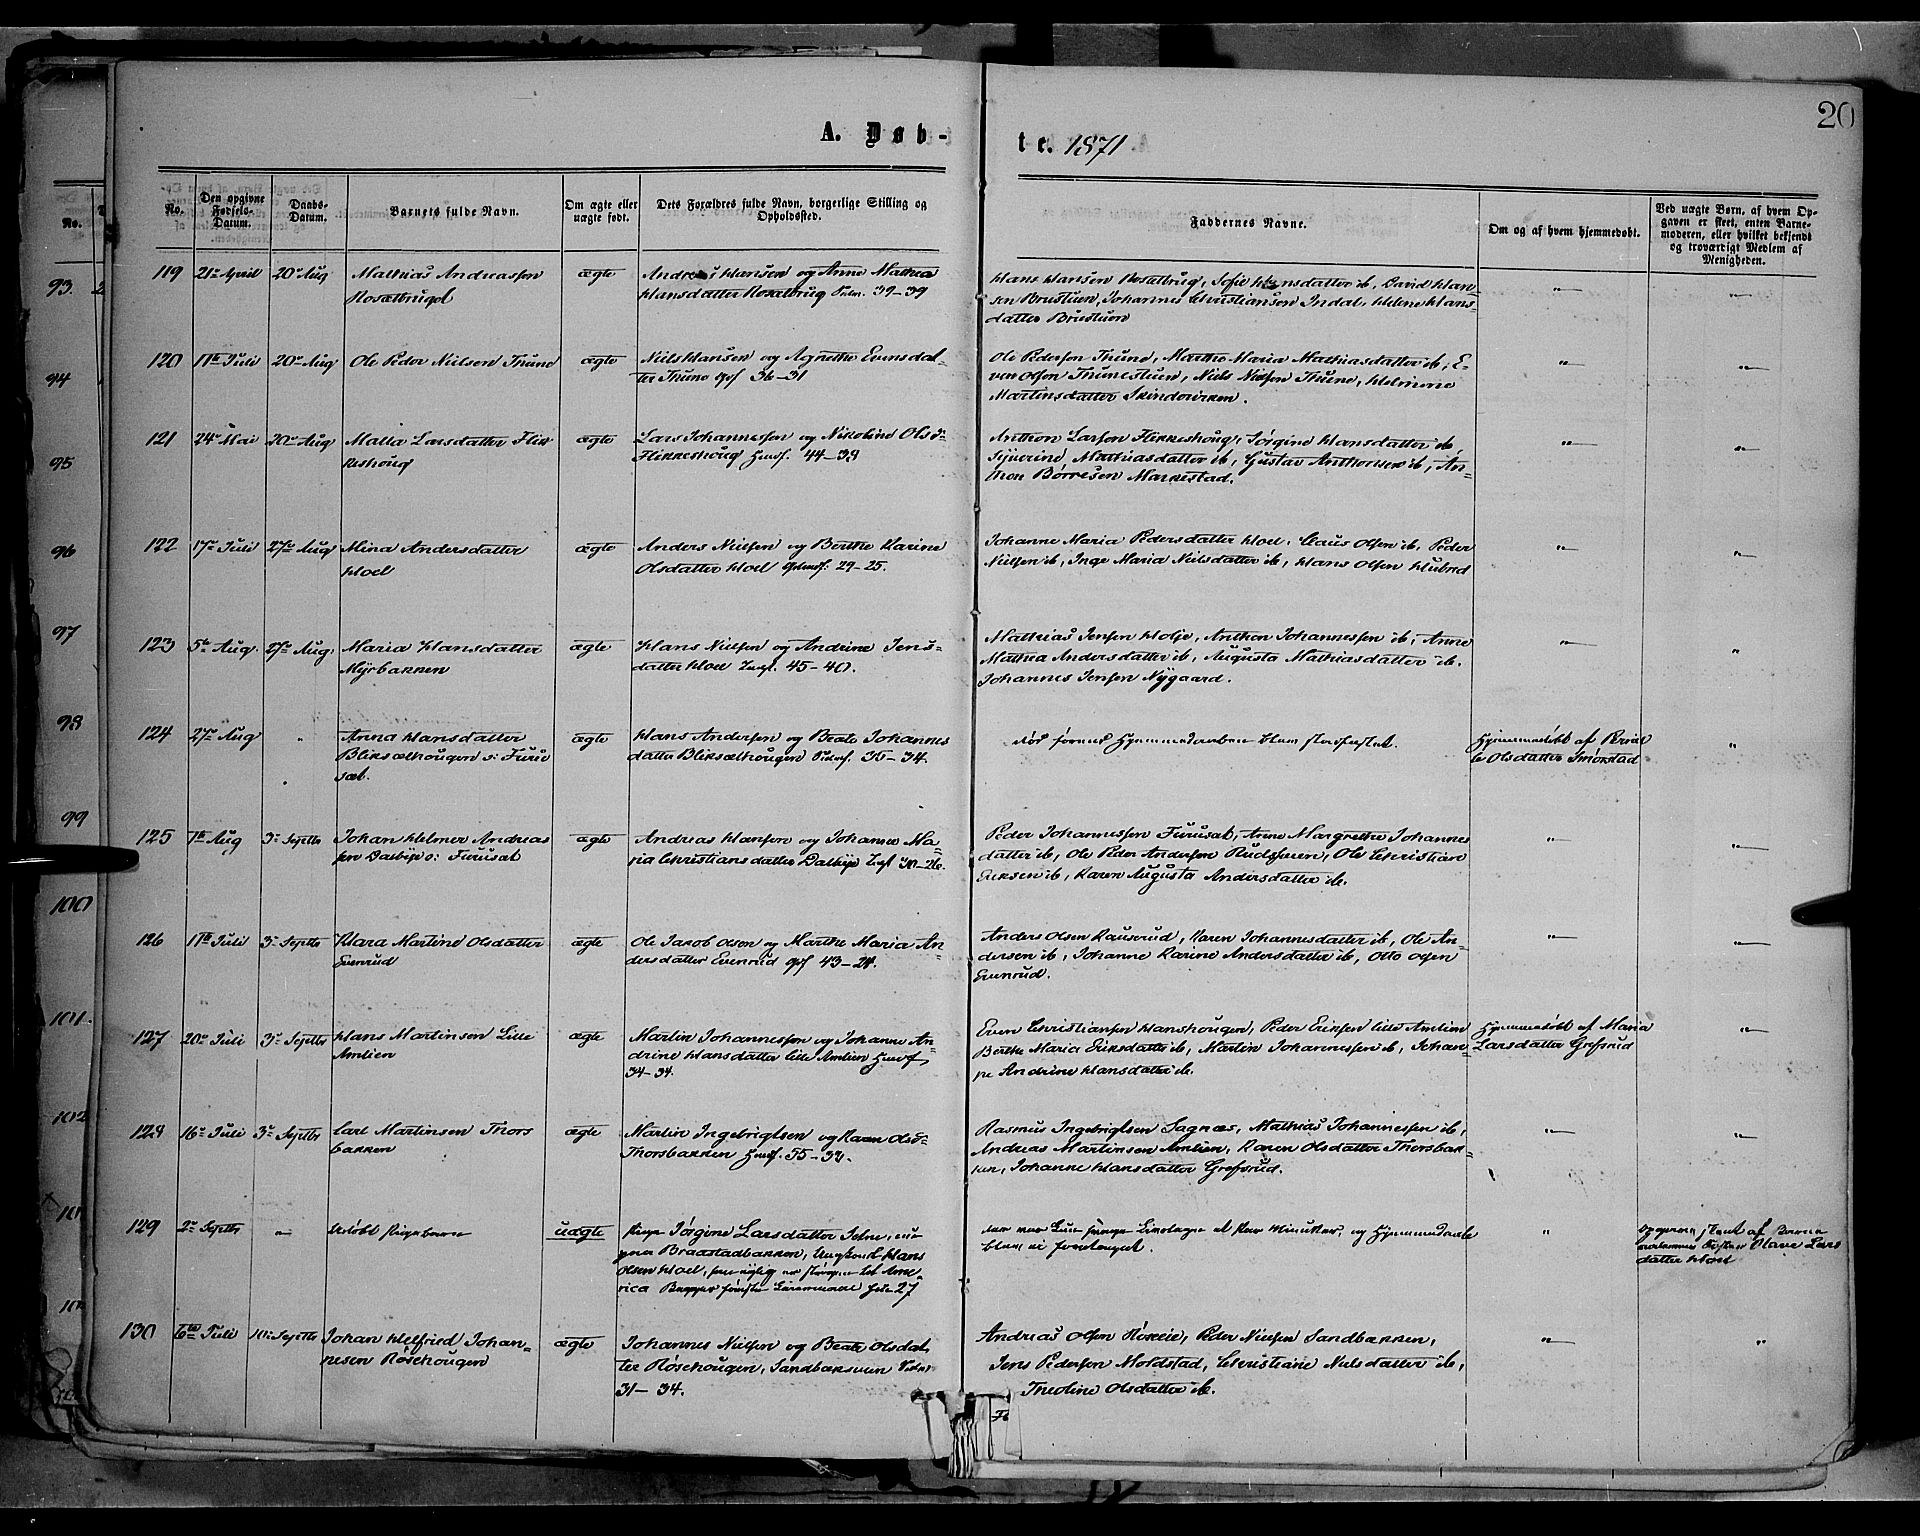 20
A. Døb-
te. 1871
No.
Den opgivne Fødsels-Datum.
Daabs-Datum.
Barnets fulde Navn.
Om ægte eller uægte født.
Dets Forældres fulde Navn, borgerlige Stilling og Opholdssted.
Faddernes Navne.
Om og af hvem hjemmedøbt.
Ved uægte Børn, af hvem Op-
gaven er skeet, enten Barne-
moderen, eller hvilket bekjendt
og troværdigt Medlem af
Menigheden.
119 21de April 20de Aug Mathias Andreassen ægte Andreas Hansen og Anne Mathea
Rosælbrugd Hansdatter Rosælbrug 39-39
Hans Hansen Rosælbrug, Sofie Hansdatter ib, David Han-
sen Brustuen, Johannes Christiansen Indal, Helene Hans-
datter Brustuen
120 11te Juli 20de Aug Ole Peder Nielsen Thune ægte Niels Hansen og Agnethe Evensdat-
ter Thune 36-31
Ole Pedersen Thune, Marthe Maria Mathiasdatter ib, E-
ven Olsen Thunestuen, Niels Nielsen Thune, Helmine
Martinsdatter
121 24de Mai 20de Aug Malla Larsdatter Flik ægte Lars Johannessen og Nikoline Olsd=
keshoug Flikkeshoug Huusf. 44-39
Anthon Larsen Flikkeshoug, Jørgine Hansdatter ib
Syverine Mathiasdatter ib, Gustav Anthonsen ib, An=
thon Børresen Markestad.
122 17de Juli 27de Aug Mina Andersdatter ægte Anders Nielsen og Berthe Karine
Hoel Olsdatter Hoel 29-25.
Johanne Maria Pedersdatter Hoel, Claus Olsen ib, Peder
Nielsen ib, Inge Maria Nielsdatter ib, Hans Olsen
123 5te Aug. 27de Aug. Maria Hansdatter ægte Hans Nielsen og Andrine Jens-
Myrbakken datter Hoel 45-40.
Mathias Jensen Holje, Anthon Johannessen ib, Anne
Mathea Andersdatter ib, Augusta Mathiasdatter ib.
Johannes Jensen Nygaard.
124 27de Aug " Anna Hansdatter ægte Hans Andersen og Beate Johannes
Bliksælhougen o: Furu datter Bliksælhougen 35-34.
sæt.
død førend Hjemmedaaben blev stadfæstet.
Hjemmedøbt af
Olsdatter Smørstad
125 7te Aug 3de Septbr Johan Helmer Andreas ægte Andreas Hansen og Johanne Ma-
sen Dalbye o: Furusæt ria Christiansdatter Dalbye 30-26.
Peder Johannessen Furusæt, Anne Margrethe Johannes
datter ib, Ole Peder Andersen Rudshuen, Ole Christian
Eriksen ib, Karen Augusta Andersdatter ib.
126 11te Juli 3de Septbr Klara Martine Olsdatter ægte Ole Jakob Olsen og Marthe Maria An
Evenrud dersdatter Evenrud 43-24.
Anders Olsen Kauserud, Karen Johannesdatter ib, Ole An-
dersen ib, Johanne Karine Andersdatter ib, Otto Olsen
Evenrud.
127 20de Juli 3de Septbr Hans Martinsen Lille ægte Martin Johannessen og Johanne An-
Amlien drine Hansdatter lille Amlien Huusf,
34-34.
Even Christiansen Hanshougen, Peder Eriksen lille Amlien
Berthe Maria Eriksdatter ib, Martin Johannessen ib, Johan-
ne Andrine Hansdatter ib.
Hjemmedøbt af Maria
Larsdatter Grefsrud
128 16de Juli 3de Septbr Carl Martinsen Thors ægte Martin Ingebrigtsen og Karen Olsd=
bakken Thorsbakken Huusf. 55-34.
Rasmus Ingebrigtsen Sagnæs, Mathias Johannessen ib,
Andreas Martinsen Amlien, Karen Olsdatter Thorsbak-
ken, Johanne Hansdatter Grefsrud.
129 2de Septbr " Udøbt Pigebarn uægte Pige Jørgine Larsdatter
Braastadbakken, Ungkarl Hans
Olsen Hoel, til Ame-
rica 27
der var Livstegn et Par Minutter, og Hjemmedaab
blev ei foretaget.
af Barne
moderens Søster Olave Lars
datter Hoel
130 6te Juli 10de Septbr Johan Helfried Johan- ægte Johannes Nielsen og Beate Olsdat
nesen Røsehougen ter Røsehougen, Sandbakken
31-34.
Andreas Olsen Røseeie, Peder Nielsen Sandbakken,
Jens Pedersen Moldstad, Christiane Nielsdatter ib,
Theoline Olsdatter ib.
No.
93
94
95
96
97
98
99
100
101.
102